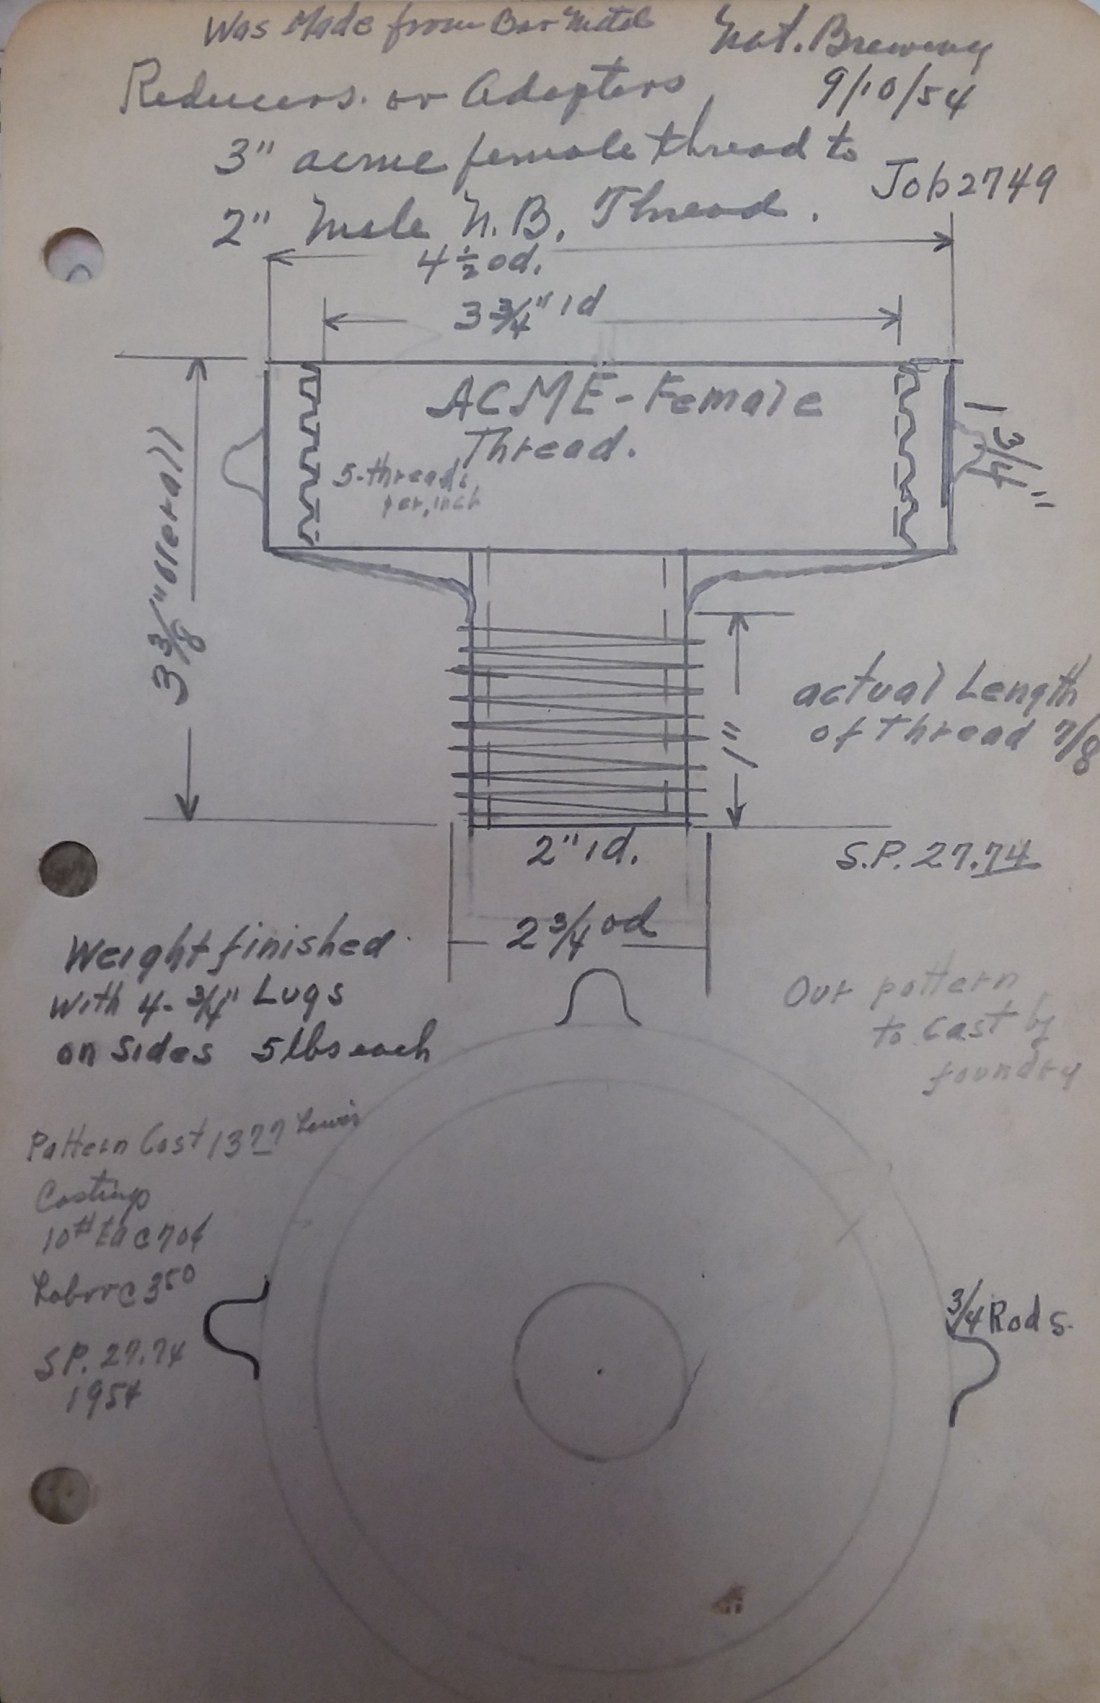 Was Made from Bar Metal
Nat. Brewing
9/10/54
Reducers or Adapters
3" acme female thread to
Job 2749
2" Male N.B. Thread.
4 1/2 od.
3 3/4" id
ACME-Female
Thread.
5-threads
per, inch
1 3/4"
3 3/8" overall
actual Length
of Thread 7/8
1"
2" id.
S.P. 27.74
2 3/4 od
Weight finished
With 4-3/4" Lugs
on Sides 5 lbs each
Our pattern
to cast by
foundry
Pattern Cost 13 77 Lewis
Castings
10# Ea @ 70¢
Labor @ 3 50
S.P. 27.74
1954
3/4 Rods.